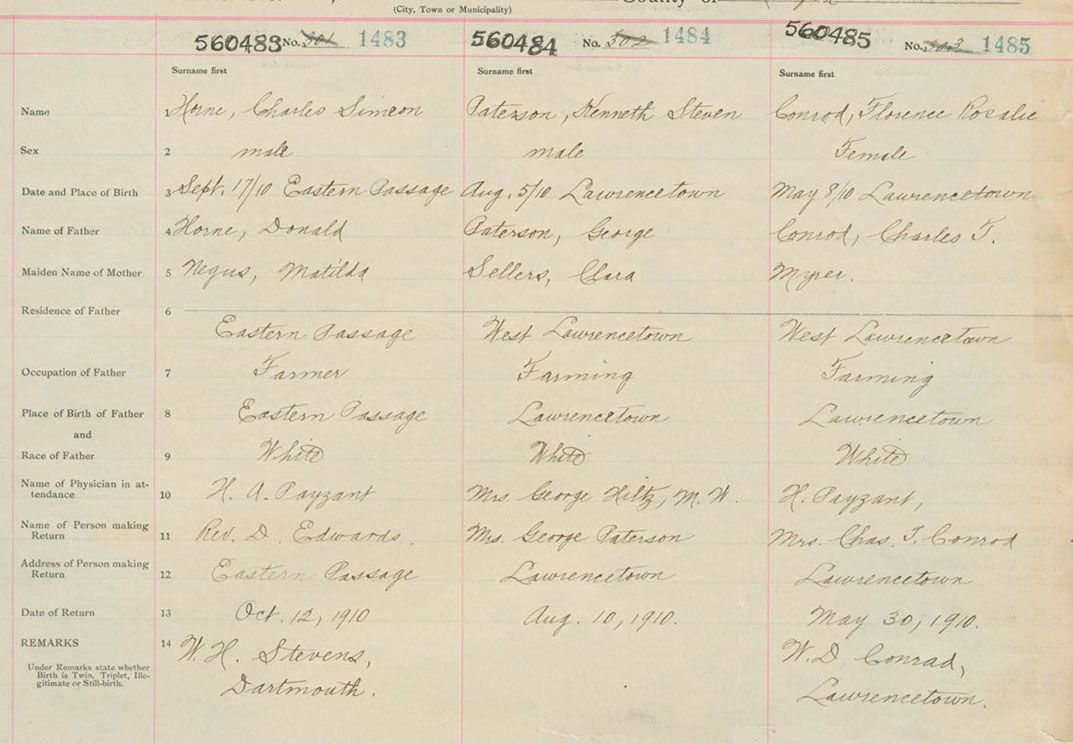 (City, Town or Municipality)
County of
560483 No. 301 1483 560484 No. 302 1484 560485 No. 303 1485
Surname first Surname first Surname first
Name 1 Horne, Charles Simeon Paterson, Kenneth Steven Conrod, Florence Rosalie
Sex 2 male male Female
Date and Place of Birth 3 Sept. 17/10 Eastern Passage Aug. 5/10 Lawrencetown May 8/10 Lawrencetown
Name of Father 4 Horne, Donald Paterson, George Conrod, Charles T.
Maiden Name of Mother 5 Negus, Matilda Sellers, Clara Myrer.
Residence of Father 6
Eastern Passage West Lawrencetown West Lawrencetown
Occupation of Father 7 Farmer Farming Farming
Place of Birth of Father 8 Eastern Passage Lawrencetown Lawrencetown
and
Race of Father 9 White White White
Name of Physician in at-
tendance 10 H. A. Payzant Mrs. George Hiltz, M. W. H. Payzant,
Name of Person making
Return 11 Rev. D. Edwards. Mrs. George Paterson Mrs. Chas. T. Conrod
Address of Person making
Return 12 Eastern Passage Lawrencetown Lawrencetown
Date of Return 13 Oct. 12, 1910 Aug. 10, 1910. May 30, 1910.
REMARKS 14 W. H. Stevens, W. D. Conrad,
Under Remarks state whether
Birth is Twin, Triplet, Ille-
gitimate or Still-birth.
Dartmouth. Lawrencetown.